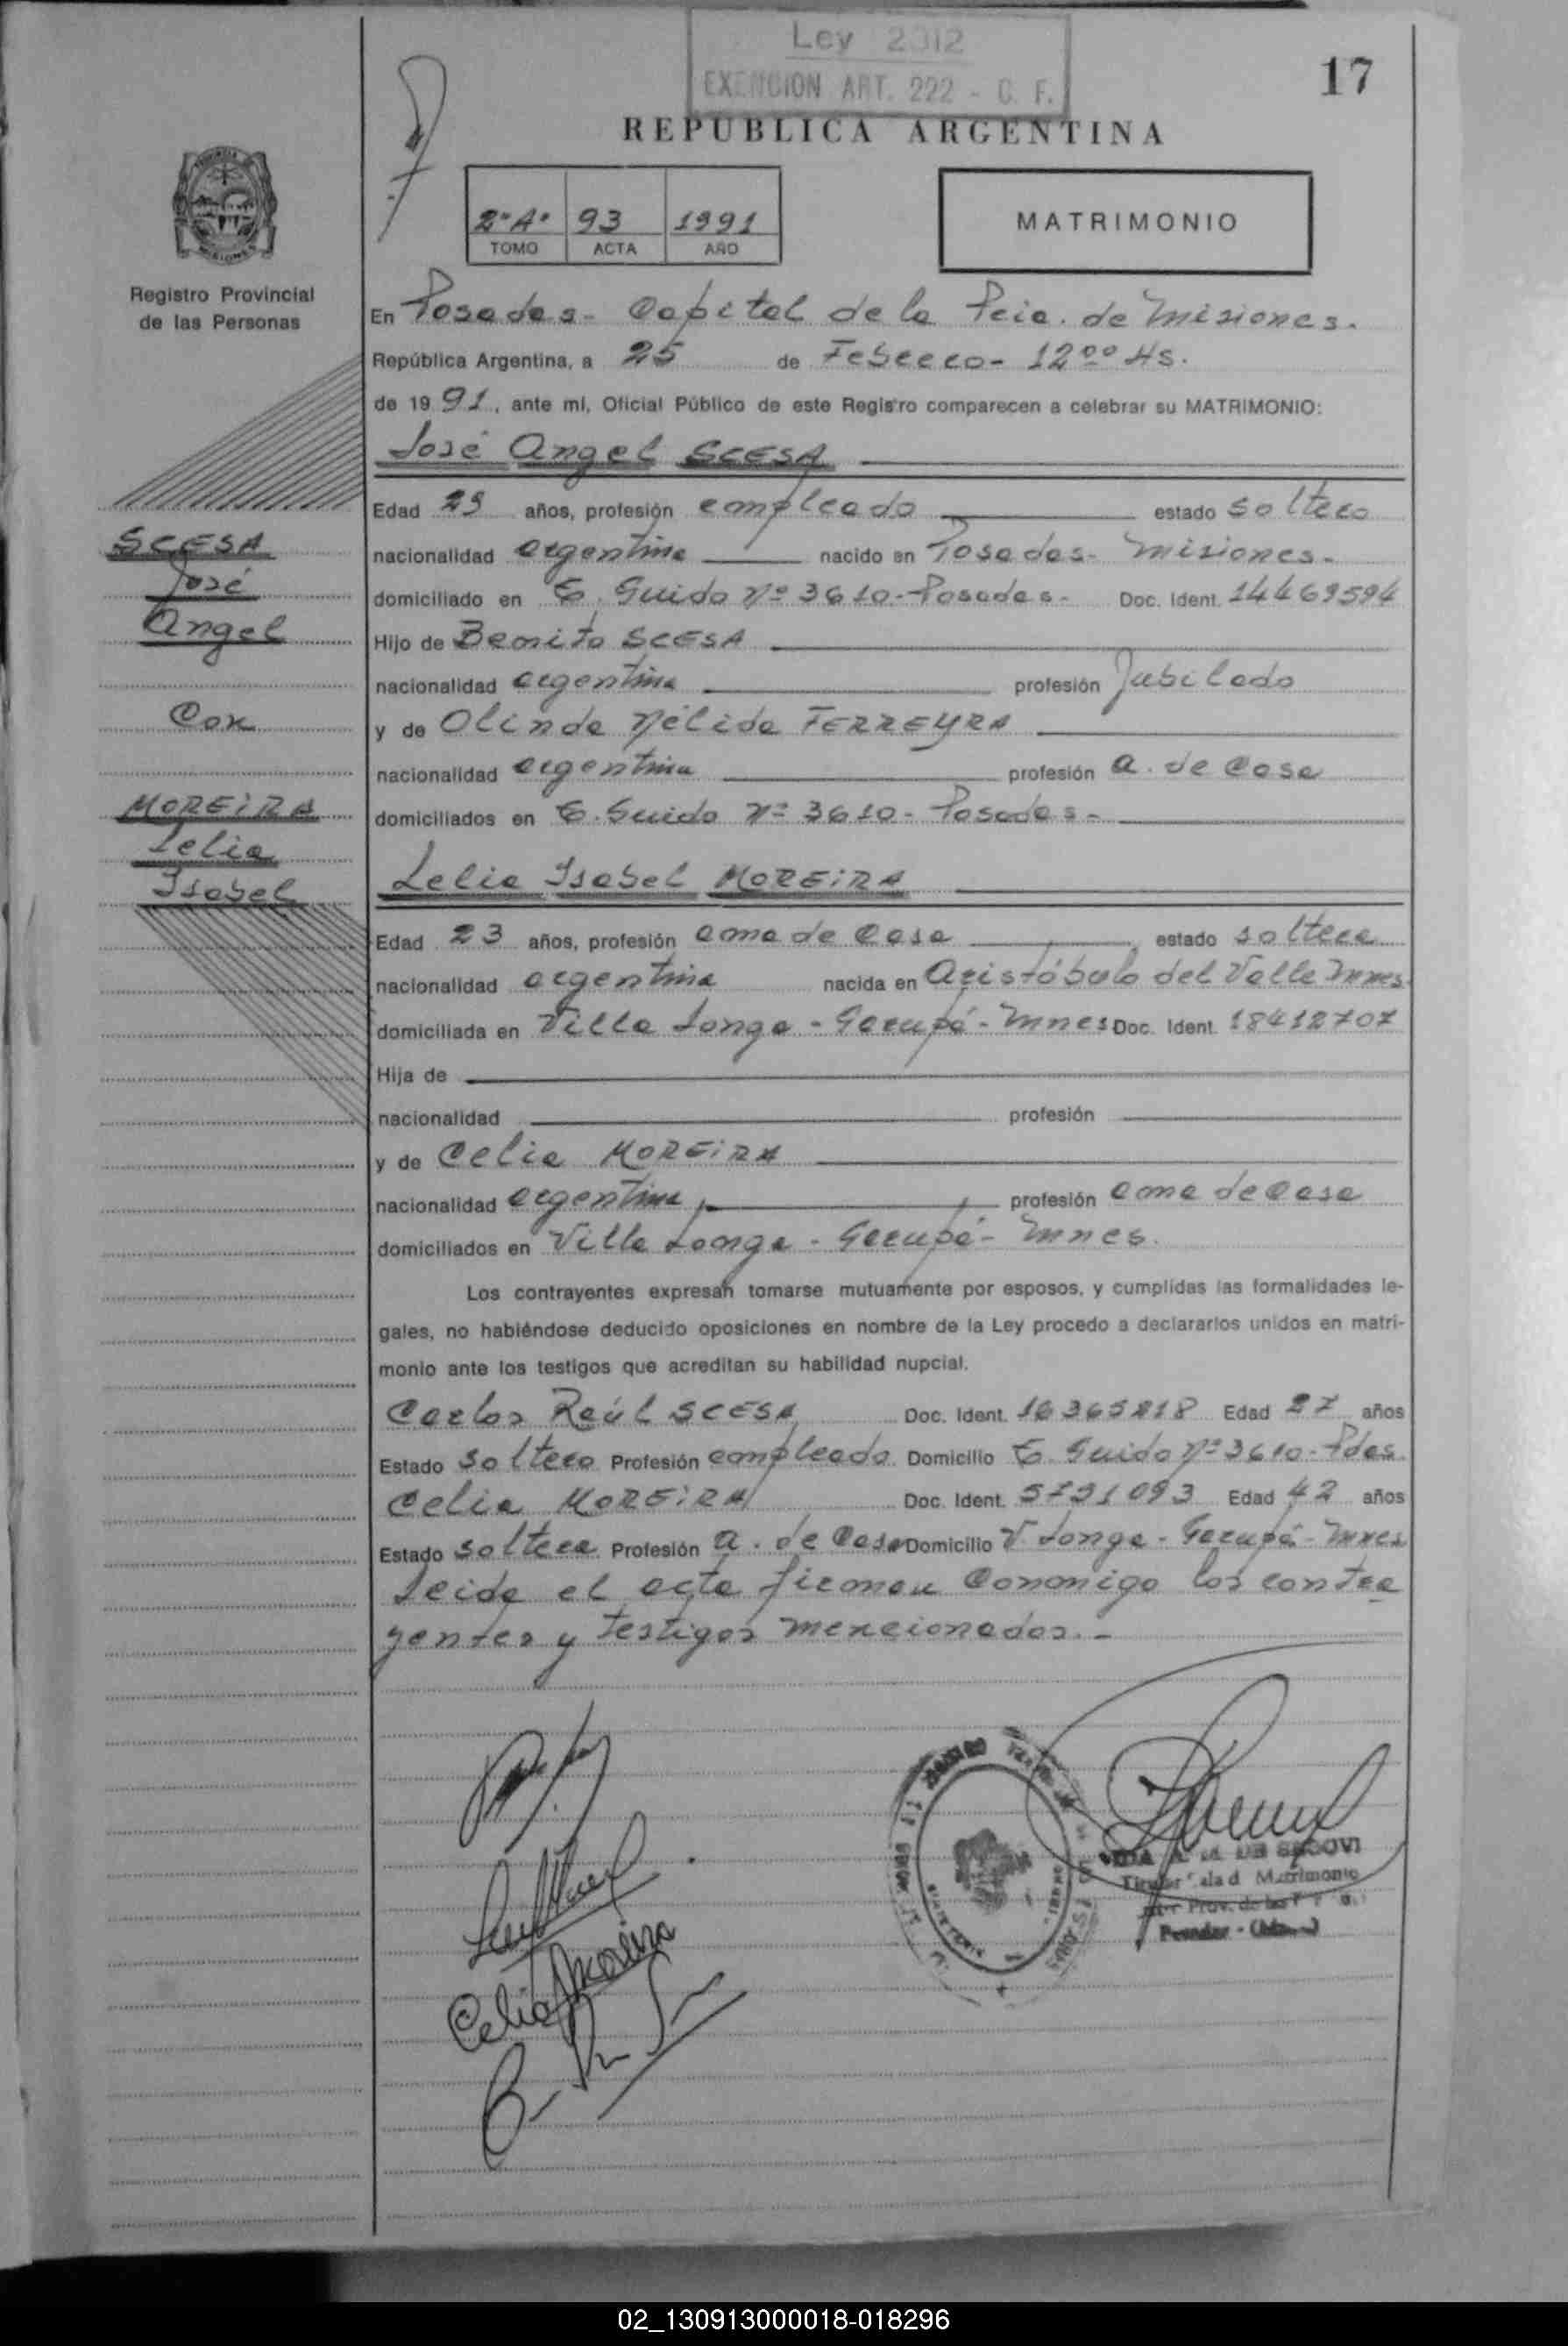 Ley 2312
EXENCION ART. 222 - C. F.
17
REPUBLICA ARGENTINA
2º Aº 93 1991
TOMO ACTA AÑO
MATRIMONIO
Registro Provincial
de las Personas
En Posadas - Capital de la Pcia. de Misiones.
República Argentina, a 25 de Febrero - 12ºº Hs.
de 1991, ante mí, Oficial Público de este Registro comparecen a celebrar su MATRIMONIO:
José Angel SCESA
Edad 29 años, profesión empleado estado soltero
nacionalidad argentina nacido en Posadas - Misiones -
domiciliado en T. Guido Nº 3610 - Posadas - Doc. Ident. 14469594
Hijo de Benito SCESA
nacionalidad argentina profesión Jubilado
y de Olinda Nélida FERREYRA
nacionalidad argentina profesión a. de casa
domiciliados en T. Guido Nº 3610 - Posadas -
SCESA
José
Angel
Con
MOREIRA
Lelia
Isabel
Lelia Isabel MOREIRA
Edad 23 años, profesión ama de casa estado soltera
nacionalidad argentina nacida en Aristóbulo del Valle Mnes.
domiciliada en Villa Longa - Garupá - Mnes Doc. Ident. 18412707
Hija de
nacionalidad profesión
y de Celia MOREIRA
nacionalidad argentina profesión ama de casa
domiciliados en Villa Longa - Garupá - Mnes.
Los contrayentes expresan tomarse mutuamente por esposos, y cumplidas las formalidades le-
gales, no habiéndose deducido oposiciones en nombre de la Ley procedo a declararlos unidos en matri-
monio ante los testigos que acreditan su habilidad nupcial.
Carlos Raúl SCESA Doc. Ident. 16365218 Edad 27 años
Estado soltero Profesión empleado Domicilio T. Guido Nº 3610 - Pdas.
Celia MOREIRA Doc. Ident. 5731093 Edad 42 años
Estado soltera Profesión a. de casa Domicilio V. Longa - Garupá - Mnes
Leida el acta firman conmigo los contra
yentes y testigos mencionados. -
Celia Moreira
DE SEGOVI
Titular Sala d Matrimonio
Prov. de las
Posadas -
02_130913000018-018296